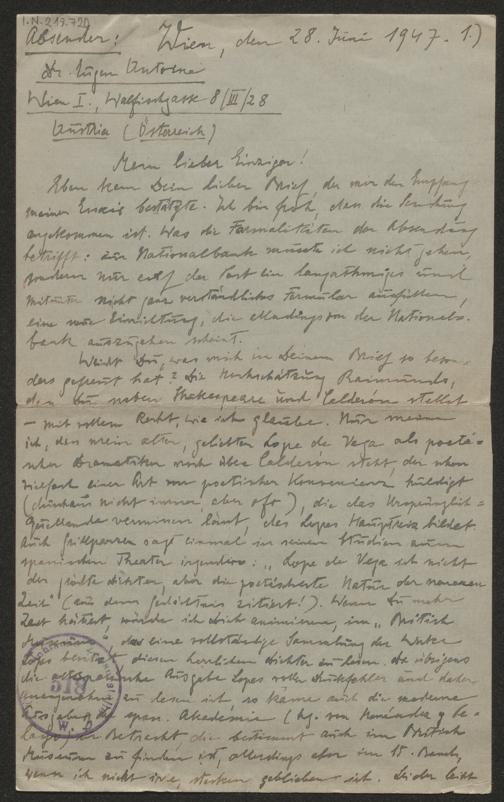 I.N. 219.720
Absender: Wien, den 28. Juni 1947. 1.)
Dr. Eugen Antoine
Wien I., Walfischgasse 8/III/28
Austria (Österreich)
Mein lieber Einziger!
Eben kam Dein lieber Brief, der mir den Empfang
meiner Essais bestätigte. Ich bin froh, dass die Sendung
angekommen ist. Was die Formalitäten der Absendung
betrifft: zur Nationalbank musste ich nicht gehen,
sondern nur auf der Post ein langatmiges und
mitunter nicht ganz verständliches Formular ausfüllen,
eine neue Einrichtung, die allerdings von der National-
bank auszugehen scheint.
Weisst Du, was mich in Deinem Brief so beson-
ders gefreut hat? Die Hochschätzung Raimunds,
den Du neben Shakespeare und Calderón stellst
– mit vollem Recht, wie ich glaube. Nur meine
ich, dass mein alter, geliebter Lope de Vega als poeti-
scher Dramatiker noch über Calderón steht, der schon
vielfach einer Art von poetischer Konvenienz huldigt
(durchaus nicht immer, aber oft), die das Ursprünglich-
Quellende vermissen lässt, das Lopes Hauptreiz bildet.
Auch Grillparzer sagt einmal in seinen Studien zum
spanischen Theater irgendwo: „Lope de Vega ist nicht
der größte Dichter, aber die poetischeste Natur der neueren
Zeit" (aus dem Gedächtnis zitiert!). Wenn Du mehr
Zeit hättest, würde ich Dich animieren, im „British
Museum", das eine vollständige Sammlung der Werke
Lopes besitzt, diesen herrlichen Dichter zu lesen. Da übrigens
die altspanische Ausgabe Lopes voller Druckfehler und daher
unangenehm zu lesen ist, so käme auch die moderne
Ausgabe der span. Akademie (hg. von Menéndez y Pe-
layo) in Betracht, die bestimmt auch im British
Museum zu finden ist, allerdings aber im 15. Band,
wenn ich nicht irre, stecken geblieben ist. Leider leiht
518